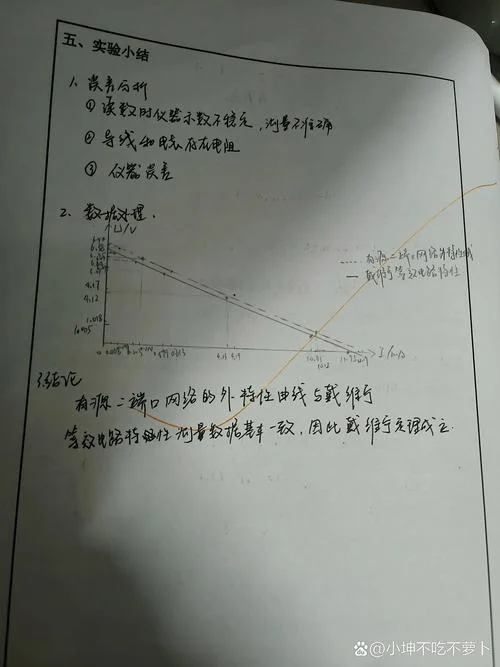 五、实验小结
1. 误差分析
① 读数时仪器示数不稳定，测量不准确
② 导线和电表存在电阻
③ 仪器误差
2. 数据处理.
U/V
有源二端口网络外特性曲线
戴维南等效电路特性
4.17
4.12
1.018
1.005
0
I/mA
结论
有源二端口网络的外特性曲线与戴维南
等效电路特性测量数据基本一致，因此戴维南定理成立.
Bai百科 @小坤不吃不萝卜